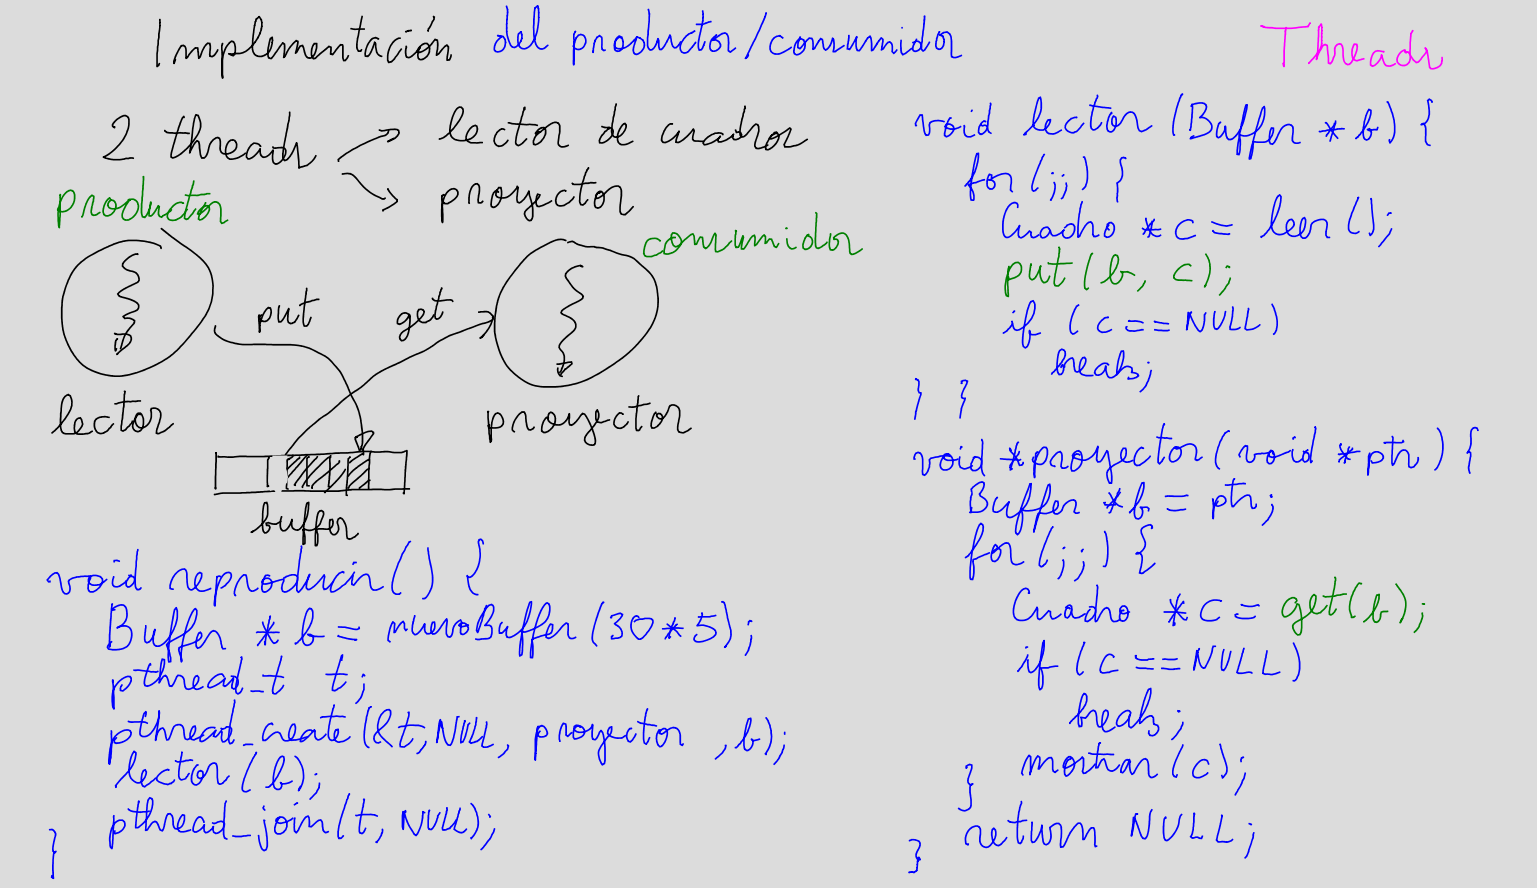 Implementación del productor/consumidor
Threads
2 threads
lector de cuadros
proyector
productor
consumidor
put
get
lector
proyector
buffer
void reproducir() {
Buffer *b = nuevoBuffer(30*5);
pthread_t t;
pthread_create(&t, NULL, proyector, b);
lector(b);
pthread_join(t, NULL);
}
void lector(Buffer *b) {
for(;;) {
Cuadro *c = leer();
put(b, c);
if (c == NULL)
break;
} }
void *proyector(void *ptr) {
Buffer *b = ptr;
for(;;) {
Cuadro *c = get(b);
if (c == NULL)
break;
mostrar(c);
}
return NULL;
}